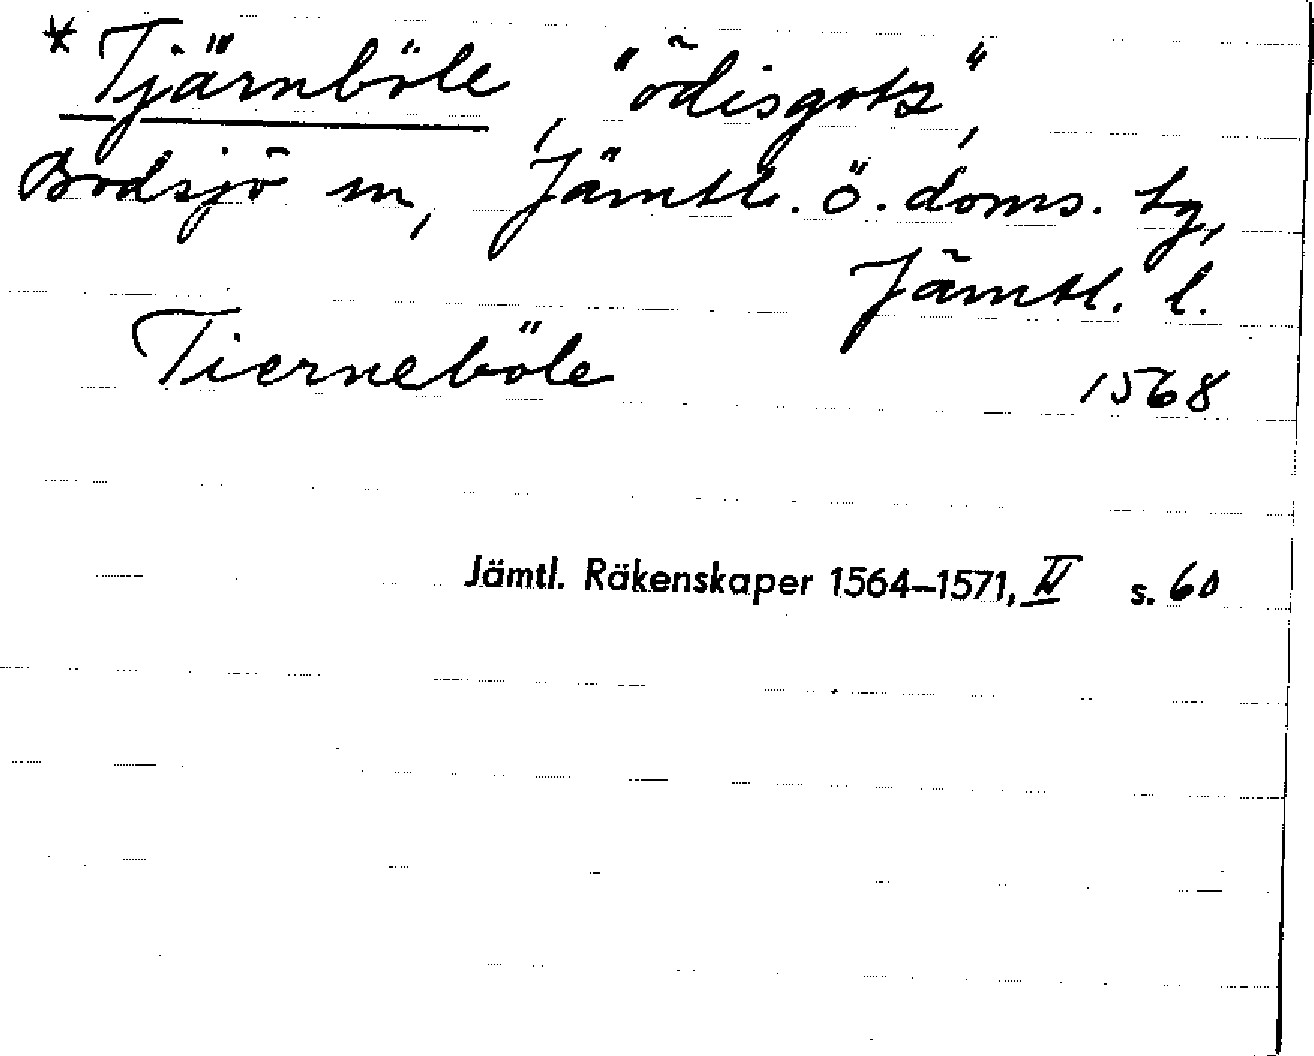 * Tjärnböle, "ödisgotz",
Bodsjö sn, Jämtl. ö. doms. tg,
Jämtl. l.
Tierneböle 1568
Jämtl. Räkenskaper 1564–1571, II s. 60